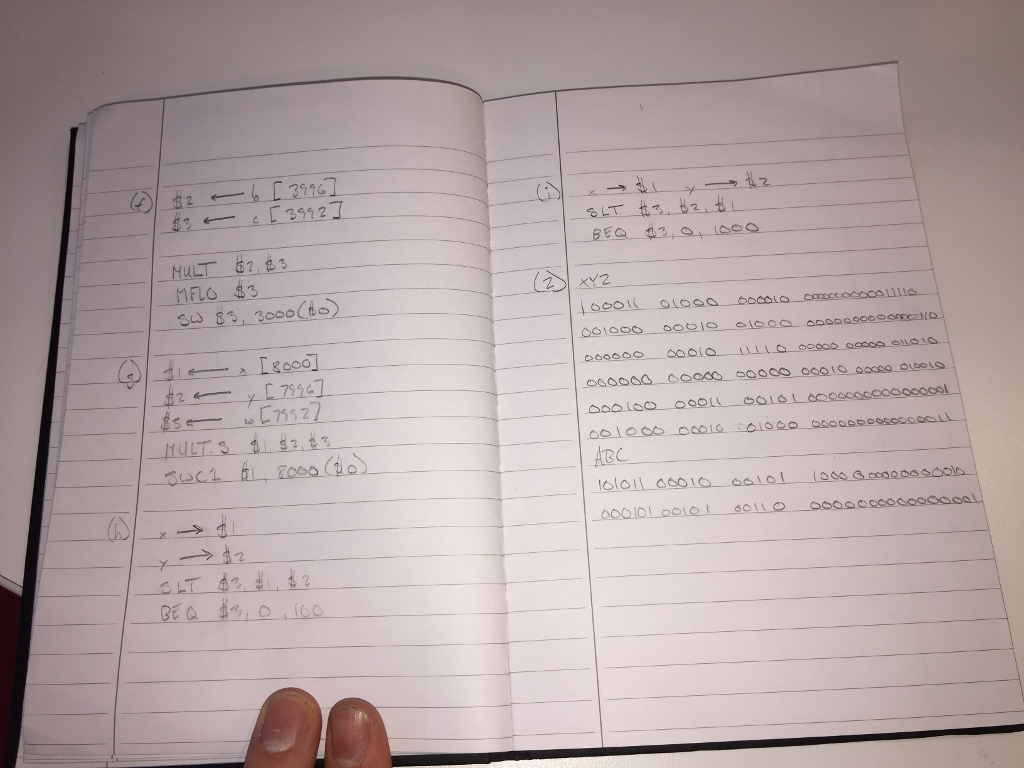 (f) $2 ← b [3996]
$3 ← c [3992]
MULT $2, $3
MFLO $3
SW $3, 3000($0)
(g) $1 ← x [8000]
$2 ← y [7996]
$3 ← w [7992]
MULT.S $1, $2, $3
SWC1 $1, 8000($0)
(h) x → $1
y → $2
SLT $3, $1, $2
BEQ $3, 0, 100
(i) x → $1 y → $2
SLT $3, $2, $1
BEQ $3, 0, 1000
(2) XYZ
100011 01000 000010
001000 00010 01000
000000 00010 11110 00000 00000 011010
000000 00000 00000 00010 00000 010010
000100 00011 00101
001000 00010 01000
ABC
101011 00010 00101
000101 00101 00110